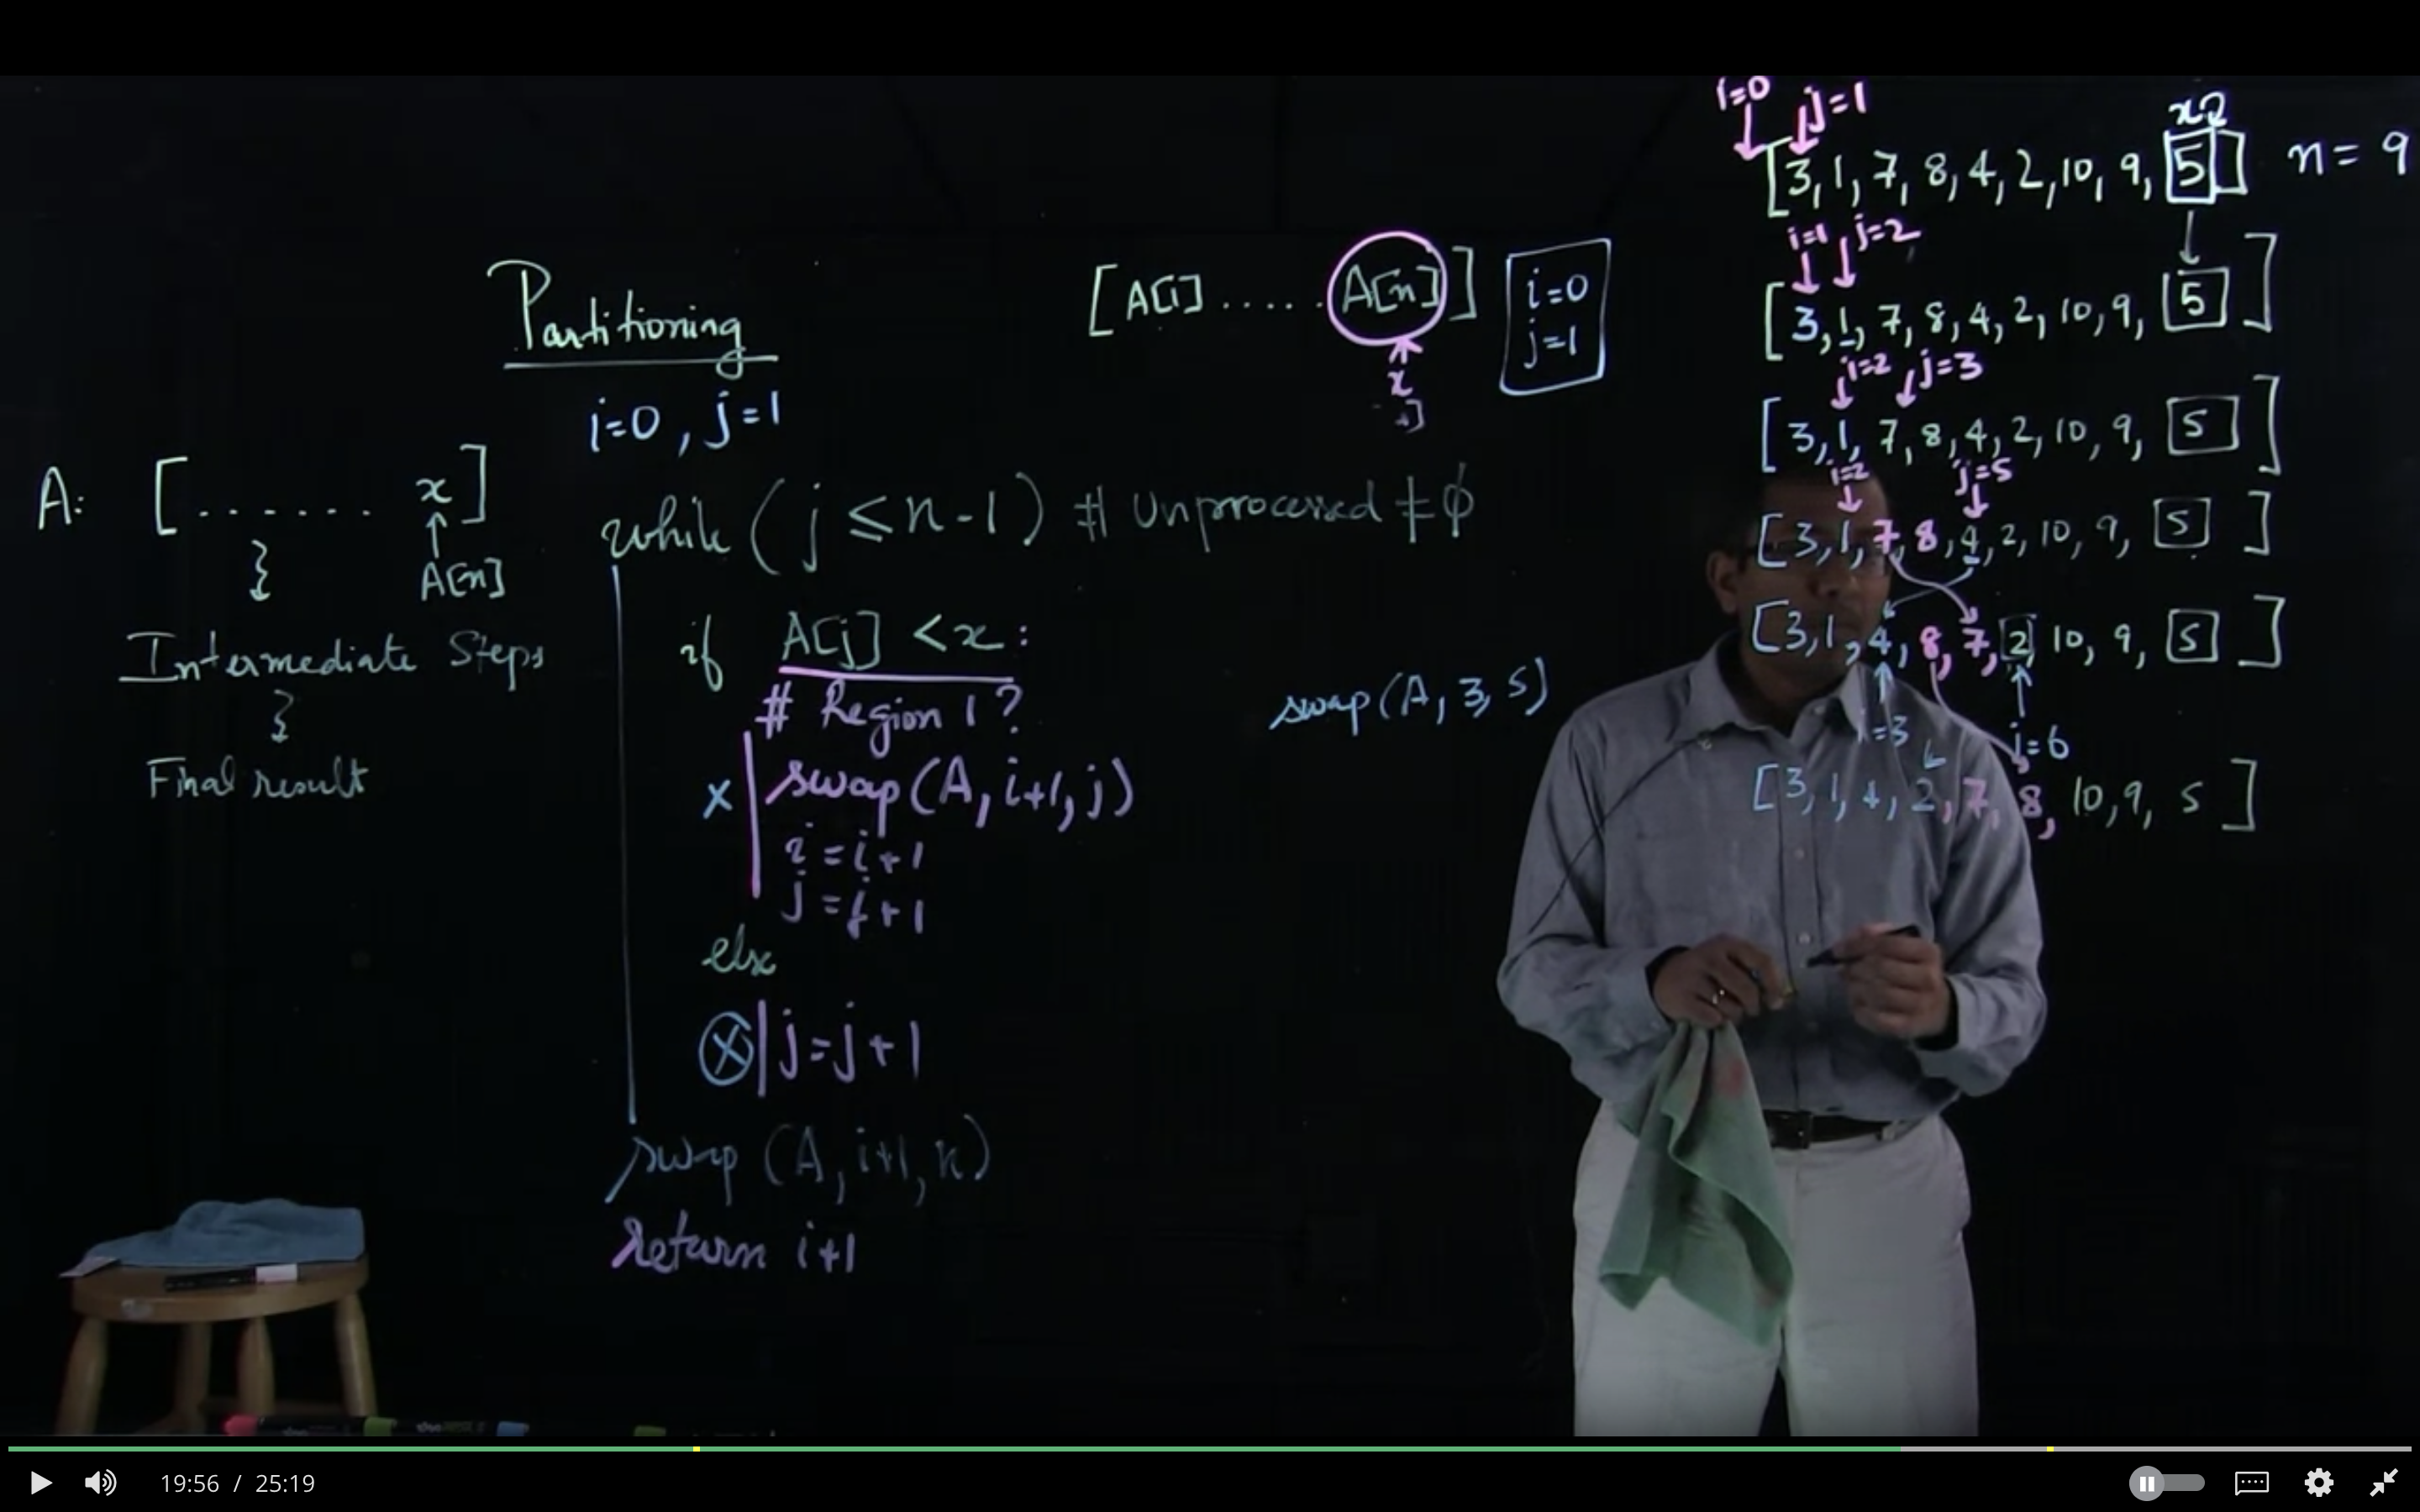 Partitioning
i=0, j=1
A: [ . . . . . . x ]
A[n]
Intermediate Steps
Final result
while ( j ≤ n-1 ) # Unprocessed ≠ ϕ
if A[j] < x :
# Region 1 ?
x swap(A, i+1, j)
i = i+1
j = j+1
else
x j = j+1
swap (A, i+1, n)
return i+1
[ A[1] ..... A[n] ]
x
i=0
j=1
swap(A, 3, 5)
i=0 j=1
[3, 1, 7, 8, 4, 2, 10, 9, 5] n = 9
i=1 j=2
[3, 1, 7, 8, 4, 2, 10, 9, 5]
i=2 j=3
[3, 1, 7, 8, 4, 2, 10, 9, 5]
i=2 j=5
[3, 1, 7, 8, 4, 2, 10, 9, 5]
[3, 1, 4, 8, 7, 2, 10, 9, 5]
i=3 j=6
[3, 1, 4, 2, 7, 8, 10, 9, 5]
19:56 / 25:19